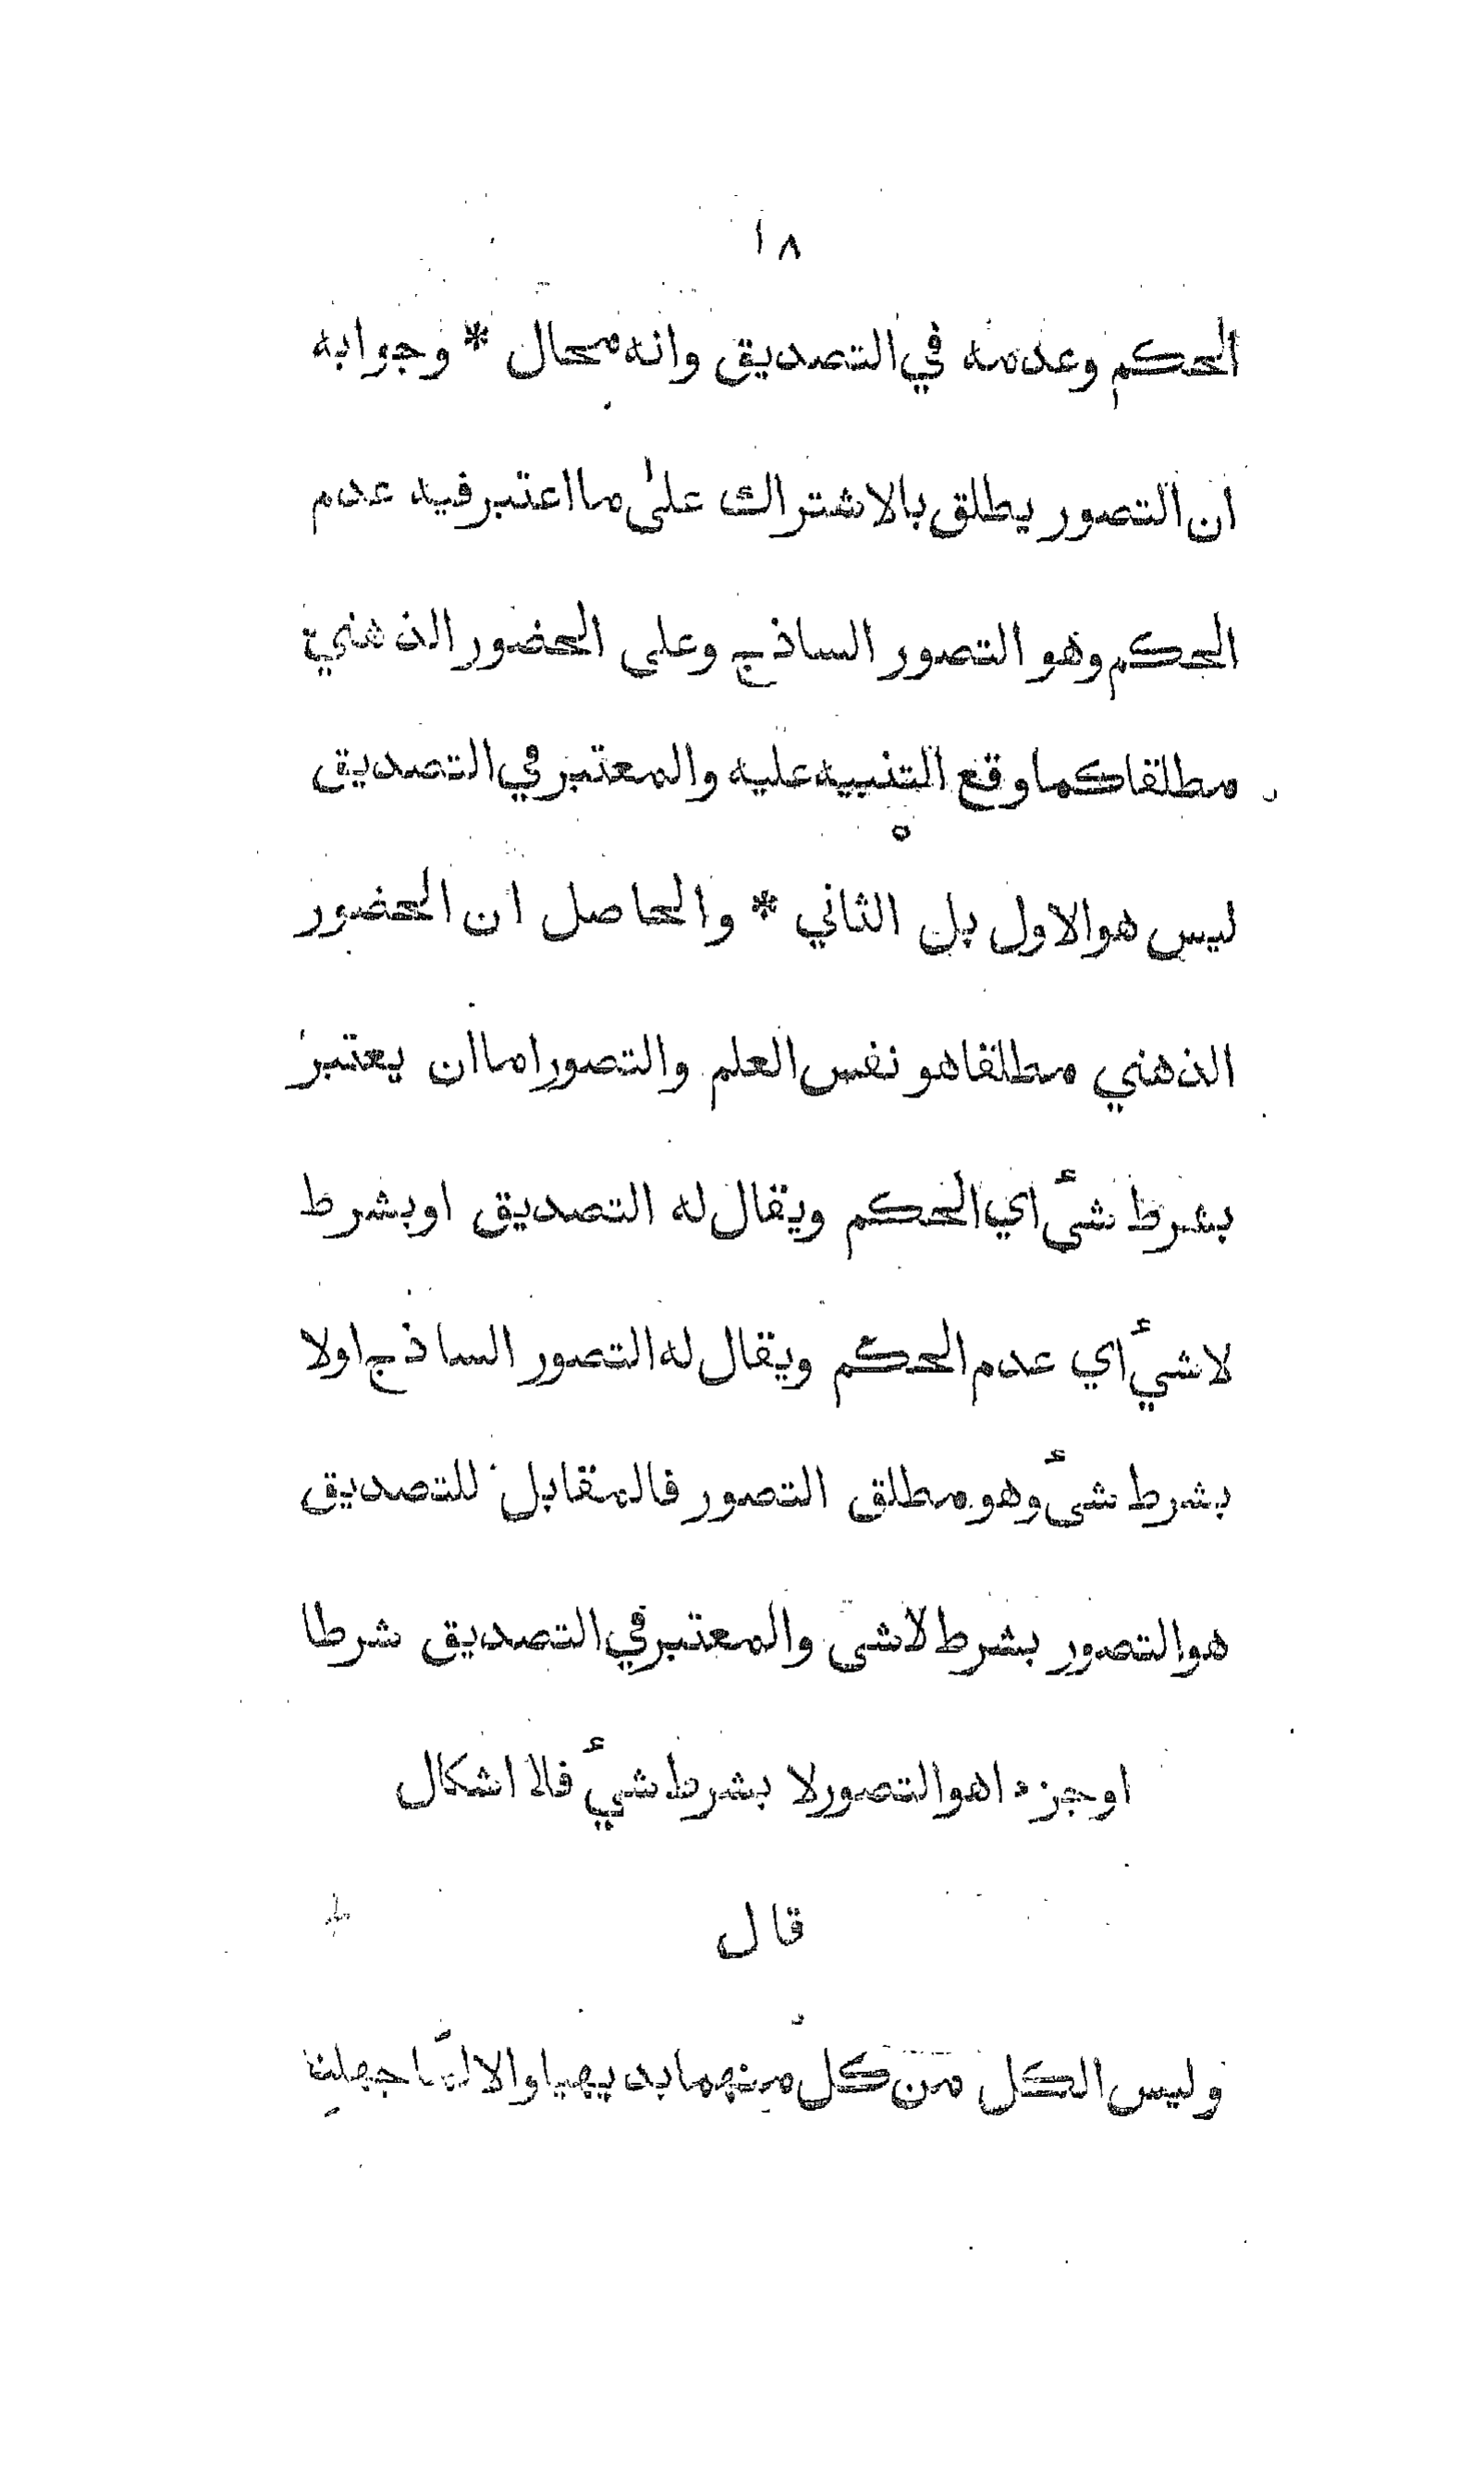 ١٨
الحكم وعدمه في التصديق وانه محال * وجوابه
ان التصور يطلق بالاشتراك على ما اعتبر فيه عدم
الحكم وهو التصور الساذج وعلى الحضور الذهني
مطلقا كما وقع التنبيه عليه والمعتبر في التصديق
ليس هو الاول بل الثاني * والحاصل ان الحضور
الذهني مطلقا هو نفس العلم والتصور اما ان يعتبر
بشرط شئ اي الحكم ويقال له التصديق او بشرط
لا شيء اي عدم الحكم ويقال له التصور الساذج اولا
بشرط شئ وهو مطلق التصور فالمقابل للتصديق
هو التصور بشرط لا شى والمعتبر في التصديق شرطا
او جزءا هو التصور لا بشرط شيء فلا اشكال
قال
وليس الكل من كل منهما بديهيا والا لما جهلنا